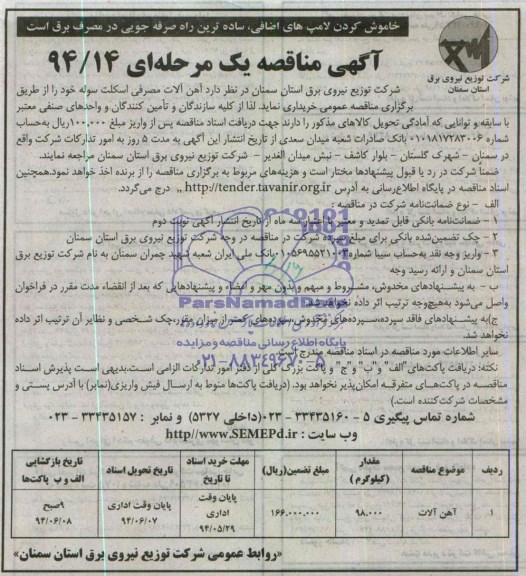 خاموش کردن لامپ های اضافی، ساده ترین راه صرفه جویی در مصرف برق است
آگهی مناقصه یک مرحله‌ای ۹۴/۱۴
شرکت توزیع نیروی برق
استان سمنان
شرکت توزیع نیروی برق استان سمنان در نظر دارد آهن آلات مصرفی اسکلت سوله خود را از طریق
برگزاری مناقصه عمومی خریداری نماید. لذا از کلیه سازندگان و تأمین کنندگان و واحدهای صنفی معتبر
با سابقه و توانایی که آمادگی تحویل کالاهای مذکور را دارند جهت دریافت اسناد مناقصه پس از واریز مبلغ ۱۰۰،۰۰۰ریال به‌حساب
شماره ۰۱۰۱۸۱۷۲۸۳۰۰۶ بانک صادرات شعبه میدان سعدی از تاریخ انتشار این آگهی به مدت ۵ روز به امور تدارکات شرکت واقع
در سمنان – شهرک گلستان – بلوار کاشف – نبش میدان الغدیر – شرکت توزیع نیروی برق استان سمنان مراجعه نمایند.
ضمناً شرکت در رد یا قبول پیشنهادها مختار است و هزینه‌های مربوط به برگزاری مناقصه را از برنده اخذ خواهد نمود.همچنین
اسناد مناقصه در پایگاه اطلاع‌رسانی به آدرس http://tender.tavanir.org.ir ,, درج می‌گردد.
الف – نوع ضمانت‌نامه شرکت در مناقصه :
۱ – ضمانت‌نامه بانکی قابل تمدید و معتبر با اعتبار سه ماه از تاریخ انتشار آگهی نوبت دوم
۲ – چک تضمین‌شده بانکی برای مبلغ سپرده شرکت در مناقصه در وجه شرکت توزیع نیروی برق استان سمنان
۳ – واریز وجه نقد به‌حساب سیبا شماره ۰۱۰۵۶۹۵۵۲۱۰۰۲بانک ملی ایران شعبه شهید چمران سمنان به نام شرکت توزیع برق
استان سمنان و ارائه رسید وجه
ب – به پیشنهادهای مخدوش، مشروط و مبهم و بدون مهر و امضاء و پیشنهادهایی که بعد از انقضاء مدت مقرر در فراخوان
واصل می‌شود به‌هیچ‌وجه ترتیب اثر داده نخواهد شد.
ج)به پیشنهادهای فاقد سپرده،سپرده‌های مخدوش،سپرده‌های کمتر از میزان مقرر،چک شخصی و نظایر آن ترتیب اثر داده
نخواهد شد.
سایر اطلاعات مورد مناقصه در اسناد مناقصه مندرج است
نکته: دریافت پاکت‌های"الف" و"ب" و"ج" و پاکت بزرگ کلی از دفتر امور تدارکات الزامی است.بدیهی است پذیرش اسناد
مناقصه در پاکت‌های متفرقه امکان‌پذیر نخواهد بود. (دریافت پاکت‌ها منوط به ارسال فیش واریزی(نمابر) با آدرس پستی و
مشخصات شرکت‌کننده است.)
شماره تماس پیگیری ۵ – ۳۳۴۳۵۱۶۰-۰۲۳(داخلی ۵۳۲۷) و نمابر : ۳۳۴۳۵۱۵۷-۰۲۳
وب سایت : http//www.SEMEPd.ir
ParsNamadData
پایگاه اطلاع رسانی مناقصه و مزایده
۰۲۱-۸۸۳۴۹۶۷۰-۵
ردیف موضوع مناقصه مقدار (کیلوگرم) مبلغ تضمین(ریال) مهلت خرید اسناد تا تاریخ تاریخ تحویل اسناد تاریخ بازگشایی الف و ب پاکت‌ها
۱ آهن آلات ۹۸،۰۰۰ ۱۶۶،۰۰۰،۰۰۰ پایان وقت اداری ۹۴/۰۵/۲۹ پایان وقت اداری ۹۴/۰۶/۰۷ ۹صبح ۹۴/۰۶/۰۸
«روابط عمومی شرکت توزیع نیروی برق استان سمنان»